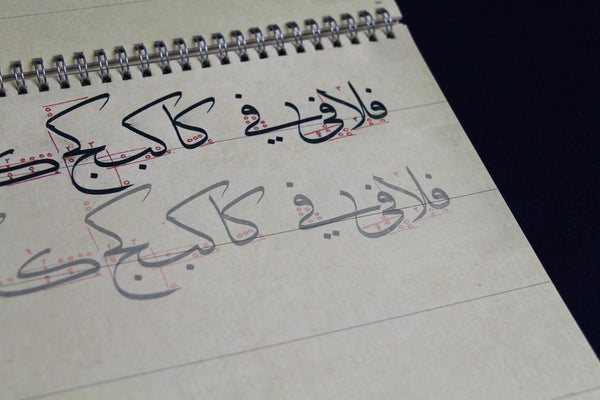 فلا في في كا كب كج
فلا في في كا كب كج